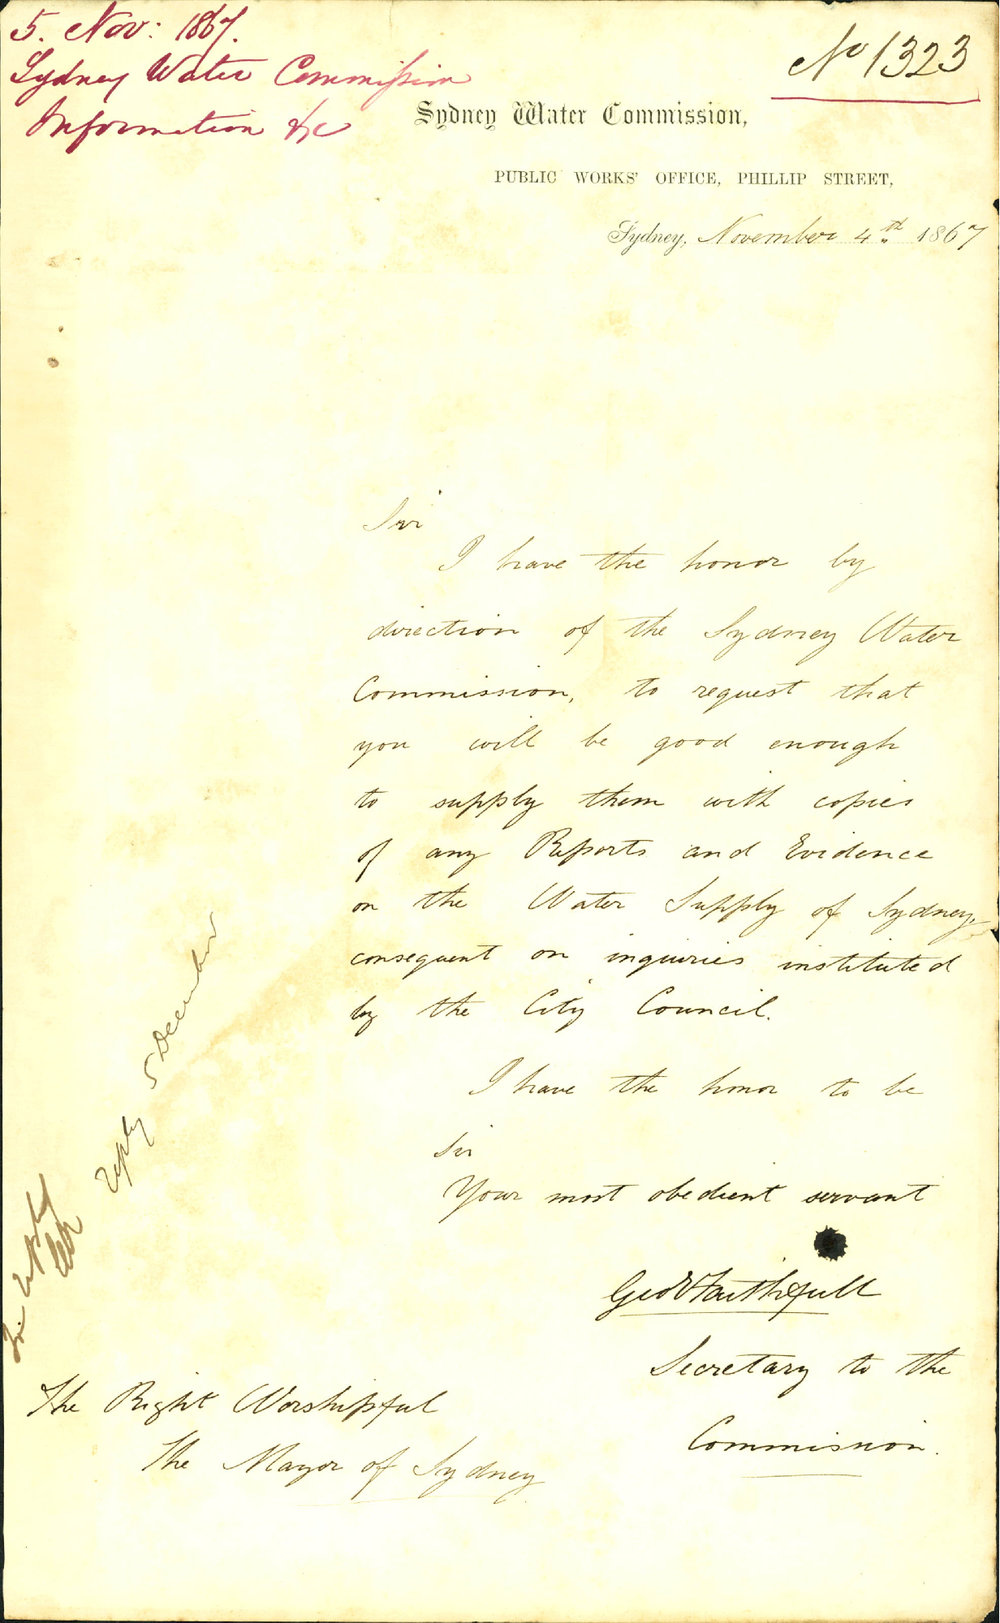 5. Nov: 1867.
Sydney Water Commission
Information &c
No 1323
Sydney Water Commission,
PUBLIC WORKS' OFFICE, PHILLIP STREET,
Sydney, November 4th 1867
Sir
I have the honor by
direction of the Sydney Water
Commission, to request that
you will be good enough
to supply them with copies
of any Reports and Evidence
on the Water Supply of Sydney,
consequent on inquiries instituted
by the City Council.
I have the honor to be
Sir
Your most obedient servant
Faithfull
Secretary to the
Commission.
The Right Worshipful
The Mayor of Sydney
reply 5 December